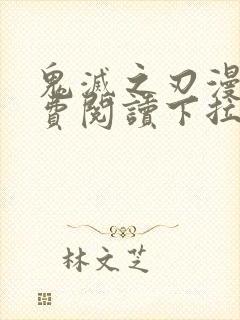 鬼滅之刃漫
費閱讀下拉
林文芝